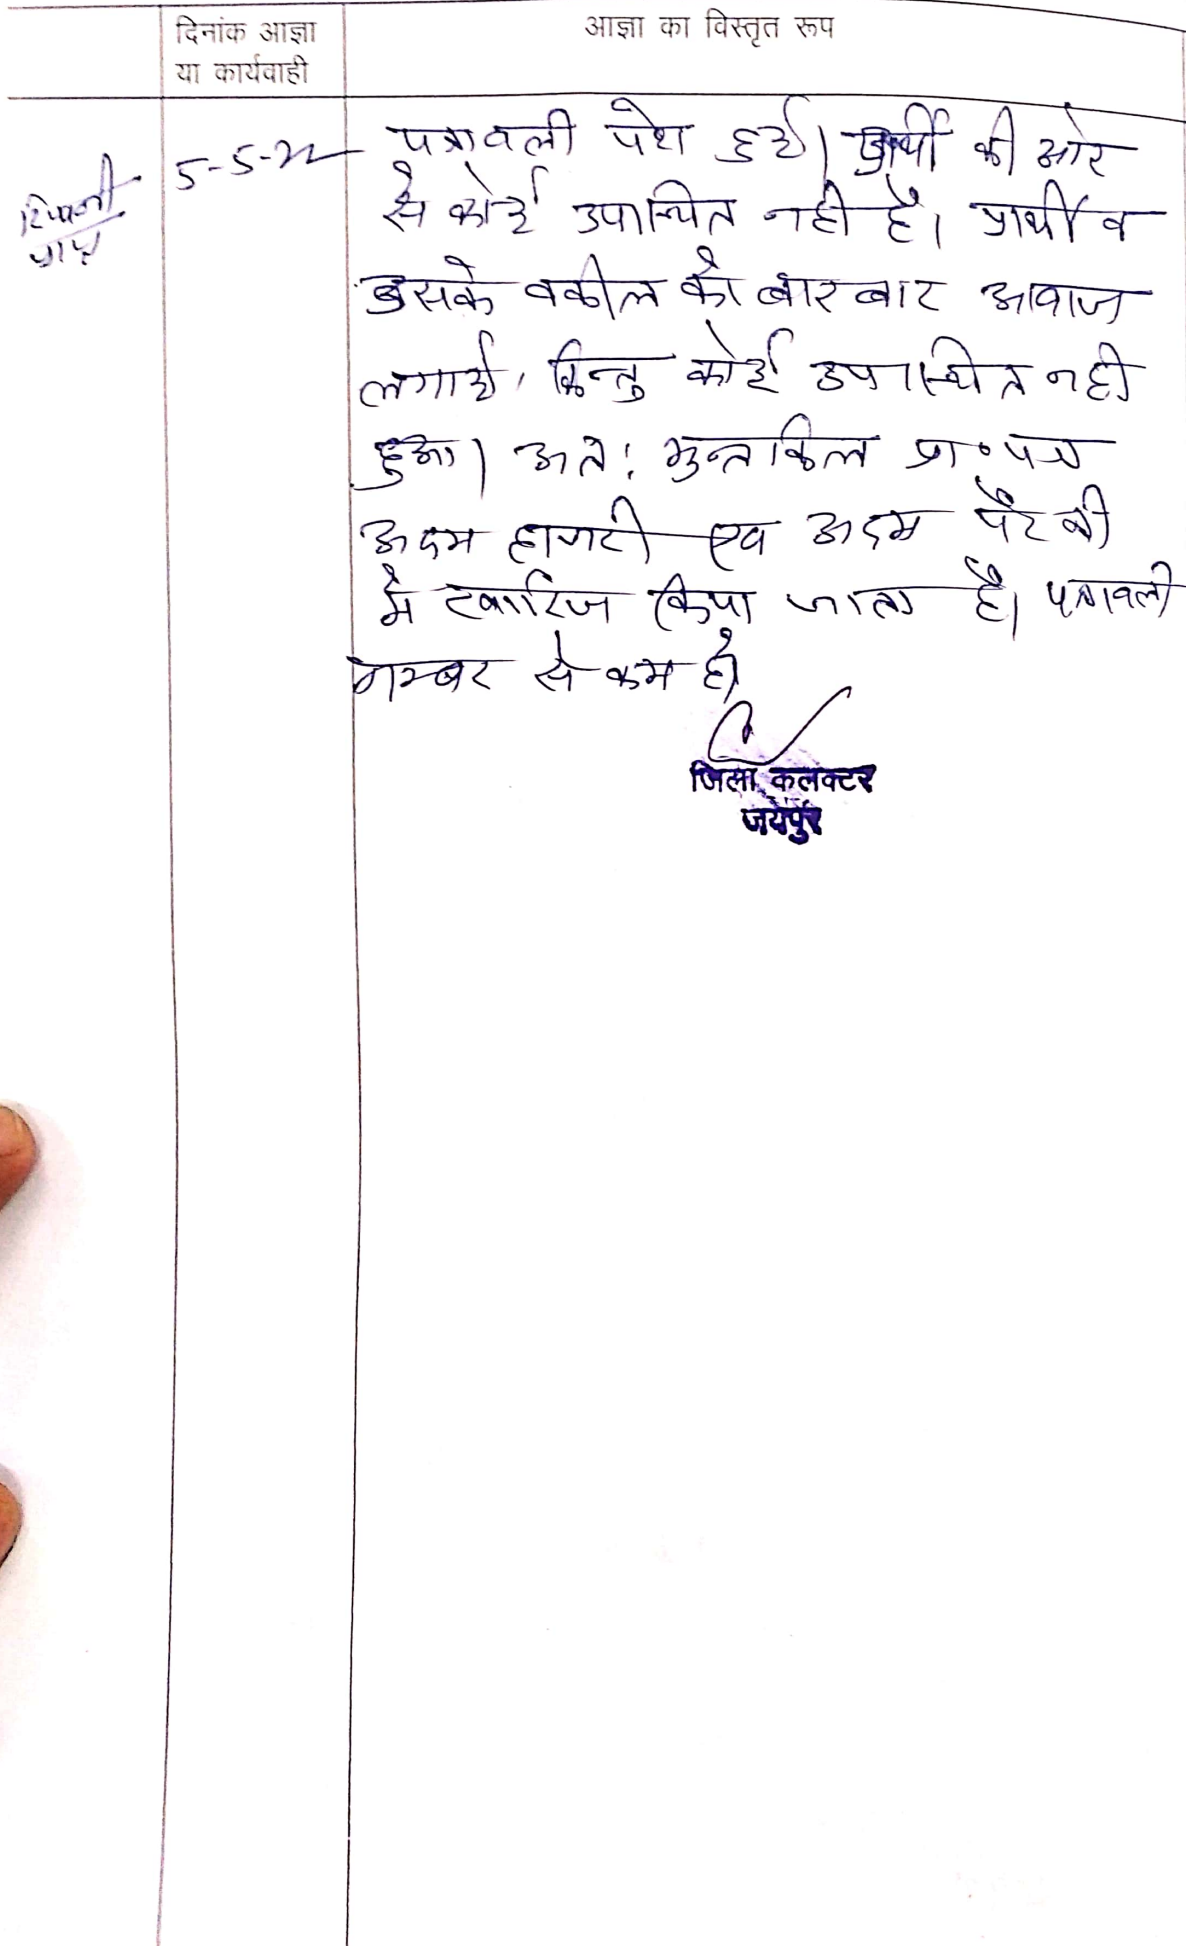 दिनांक आज्ञा
या कार्यवाही
आज्ञा का विस्तृत रूप
5-5-22
पत्रावली पेश हुई। प्रार्थी की ओर
से कोई उपस्थित नही है। प्रार्थी व
उसके वकील को बार बार आवाज
लगाई, किन्तु कोई उपस्थित नही
हुआ। अतः मुन्तकिल प्रा॰पत्र
अदम हाजरी एव अदम पैरवी
मे खारिज किया जाता है। पत्रावली
नम्बर से कम हो
जिला कलक्टर
जयपुर